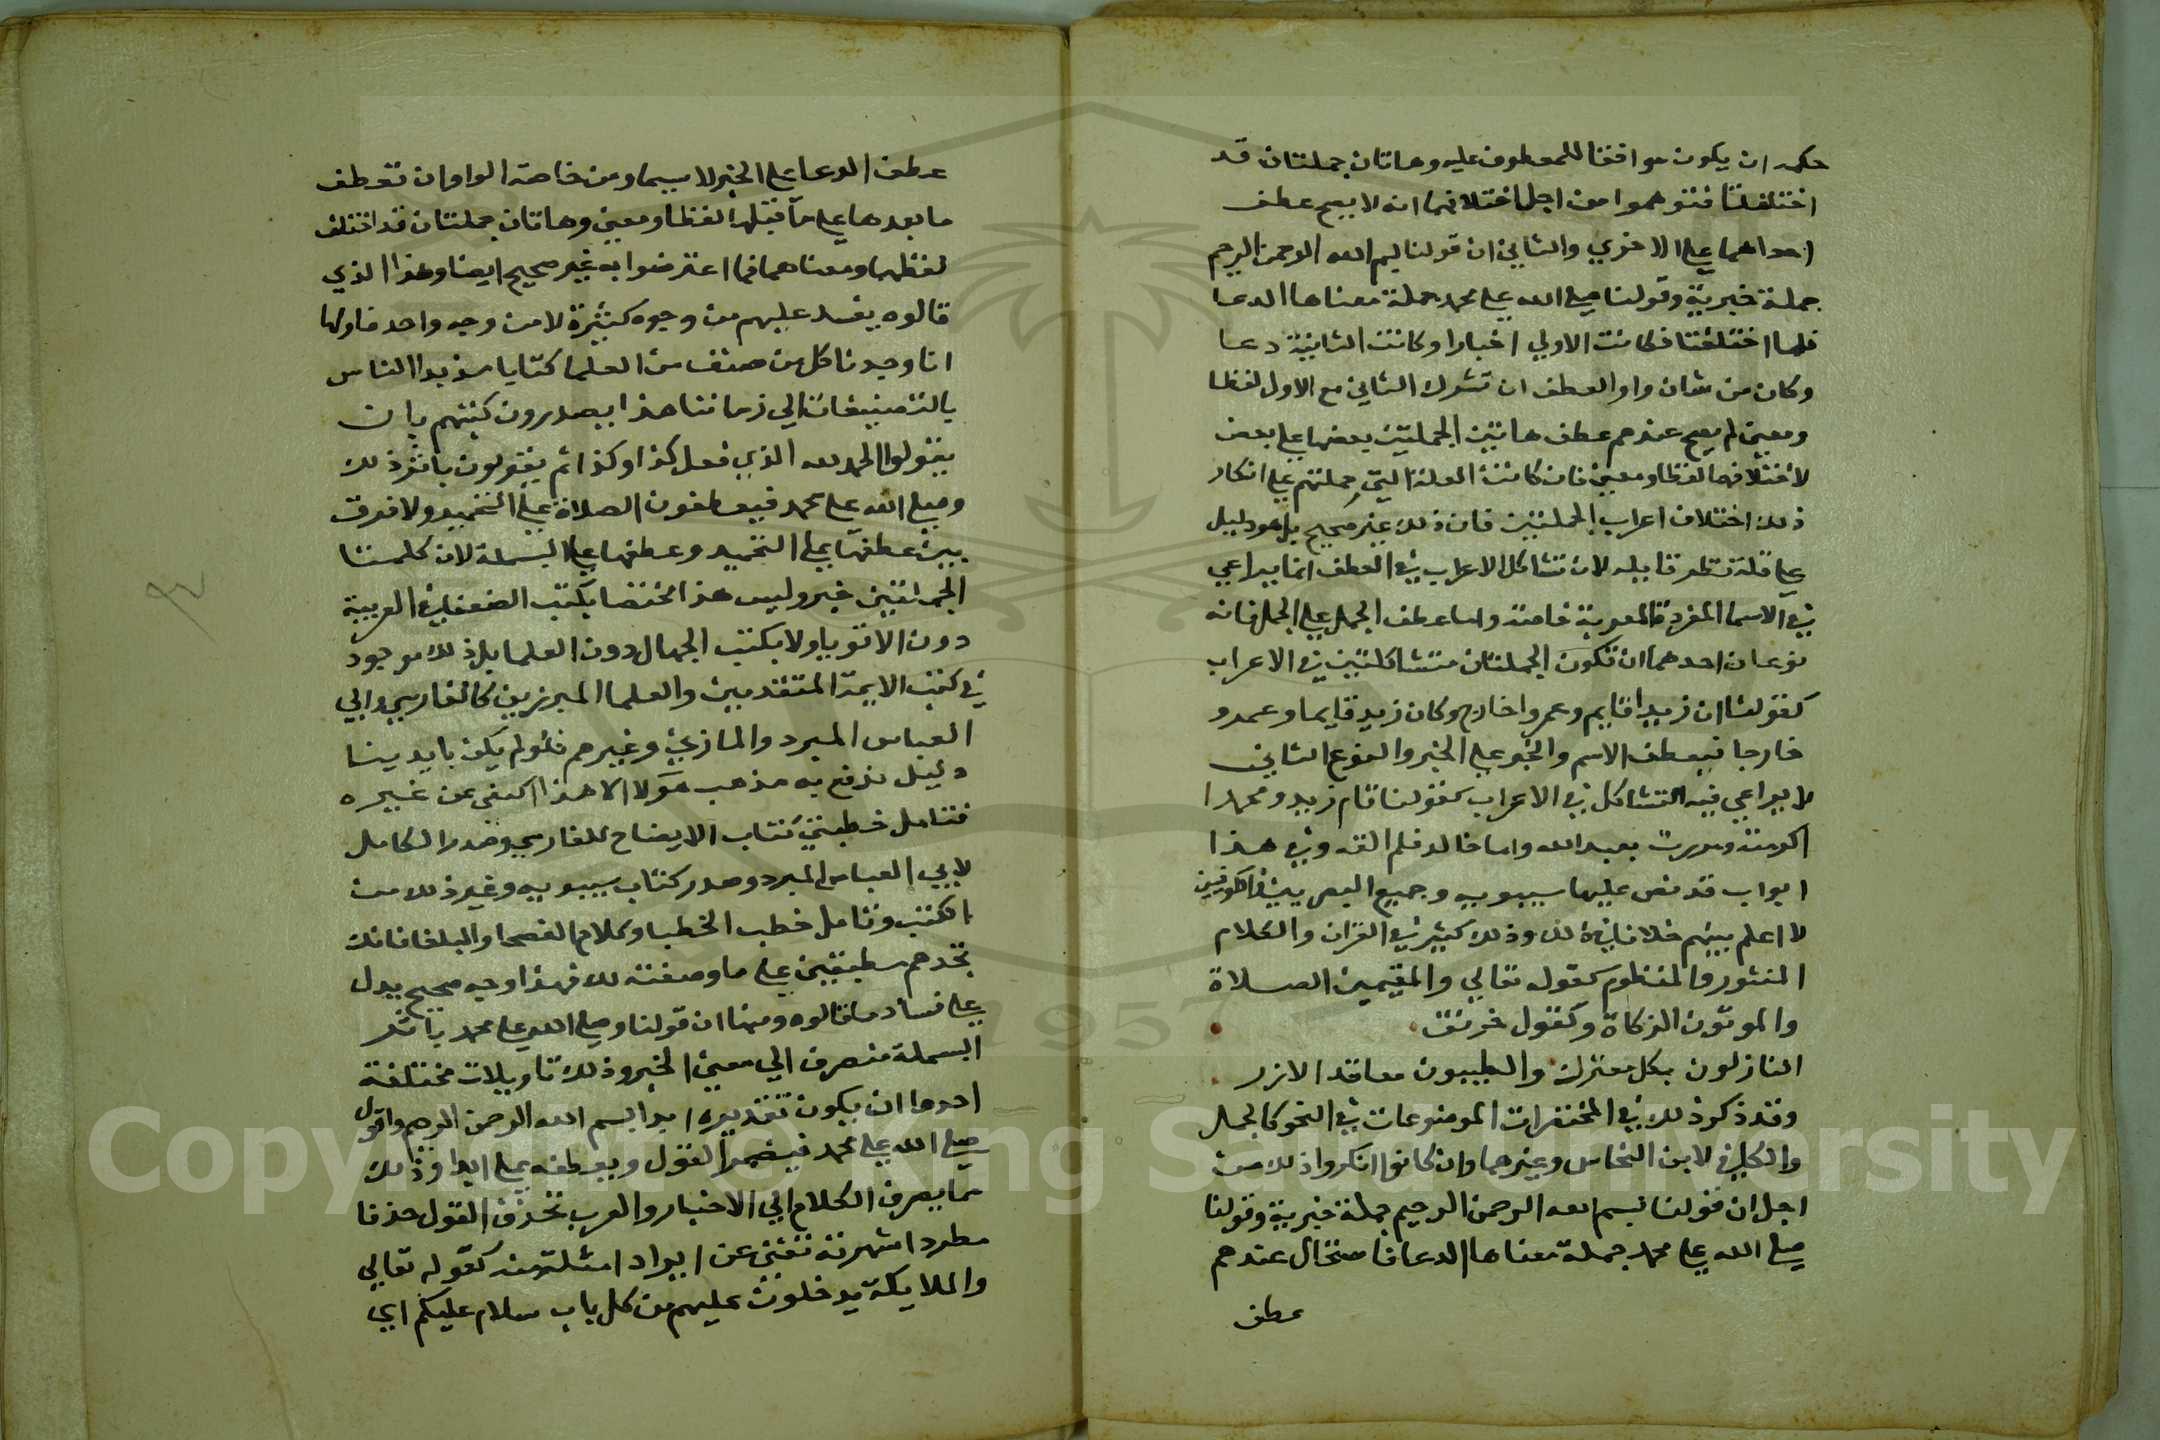 حكمه ان يكون موافقا للمعطوف عليه وهاتان جملتان قد
اختلفتا فتوهموا من اجل اختلافهما انه لا يصح عطف
احداهما علي الاخري والثاني ان قولنا بسم الله الرحمن الرحيم
جملة خبرية وقولنا صلي الله علي محمد جملة معناها الدعا
فلما اختلفتا فكانت الاولي اخبارا وكانت الثانية دعا
وكان من شان واو العطف ان تشرك الثاني مع الاول لفظا
ومعني لم يصح عندهم عطف هاتين الجملتين بعضها علي بعض
لاختلافهما لفظا ومعني فان كانت العلة التي حملتهم علي انكار
ذلك اختلاف اعراب الجملتين فان ذلك غير صحيح بل هو دليل
علي قلة نظر قايله لان تشاكل الاعراب في العطف انما يراعي
في الاسما المفردة المعربة خاصة واما عطف الجمل علي الجمل فانه
نوعان احدهما ان تكون الجملتان متشاكلتين في الاعراب
كقولنا ان زيدا قايم وعمروا خارج وكان زيد قايما وعمرو
خارجا فيعطف الاسم والخبر علي الخبر والنوع الثاني
لا يراعي فيه التشاكل في الاعراب كقولنا قام زيد ومحمدا
اكرمته ومررت بعبد الله واما خالد فلم القه وفي هذا
ابواب قد نص عليها سيبويه وجميع البصريين والكوفيين
لا اعلم بينهم خلافا في ذلك وذلك كثير في القران والكلام
المنثور والمنظوم كقوله تعالي والمقيمين الصلاة
والموتون الزكاة وكقول خرنق
النازلون بكل معترك والطيبون معاقد الازر
وقد ذكر ذلك في المختصرات الموضوعات في النحو كالجمل
والكافي لابن النحاس وغيرهما وان كانوا انكروا ذلك من
اجل ان قولنا بسم الله الرحمن الرحيم جملة خبرية وقولنا
صلي الله علي محمد جملة معناها الدعا فاستحال عندهم
عطف
عطف الدعا علي الخبر لا سيما ومن خاصة الواو ان تعطف
ما بعدها علي ما قبلها لفظا ومعني وهاتان جملتان قد اختلف
لفظهما ومعناهما فما اعترضوا به غير صحيح ايضا وهذا الذي
قالوه يفسد عليهم من وجوه كثيرة لا من وجه واحد فاولها
انا وجدنا كل من صنف من العلما كتابا مذ بدا الناس
بالتصنيف الي زماننا هذا يصدرون كتبهم بان
يقولوا الحمد لله الذي فعل كذا وكذا ثم يقولون باثر ذلك
وصلي الله علي محمد فيعطفون الصلاة علي التحميد ولا فرق
بين عطفها علي التحميد وعطفها علي البسملة لان كلمتا
الجملتين خبر وليس هذا مختصا بكتب الضعفا في العربية
دون الاقويا ولا بكتب الجهال دون العلما بل ذلك موجود
في كتب الايمة المتقدمين والعلما المبرزين كالفارسي وابي
العباس المبرد والمازني وغيرهم فلو لم يكن بايدينا
دليل ندفع به مذهب هولا الا هذا لكفي عن غيره
فتامل خطبتي كتاب الايضاح للفارسي وصدر الكامل
لابي العباس المبرد وصدر كتاب سيبويه وغير ذلك من
الكتب وتامل خطب الخطبا وكلام الفصحا والبلغا فانك
تجدهم مطبقين علي ما وصفته لك فهذا وجه صحيح يدل
علي فساد ما قالوه ومنها ان قولنا وصلي الله علي محمد باثر
البسملة منصرف الي معني الخبر وذلك تاويلات مختلفة
احدها ان يكون تقديره ابدا بسم الله الرحمن الرحيم واقول
صلي الله علي محمد فيضمر القول ويعطفه علي ابدا وذلك
مما يصرف الكلام الي الاخبار والعرب تحذف القول حذفا
مطردا شهرته تغني عن ايراد امثلة منه كقوله تعالي
والملايكة يدخلون عليهم من كل باب سلام عليكم اي